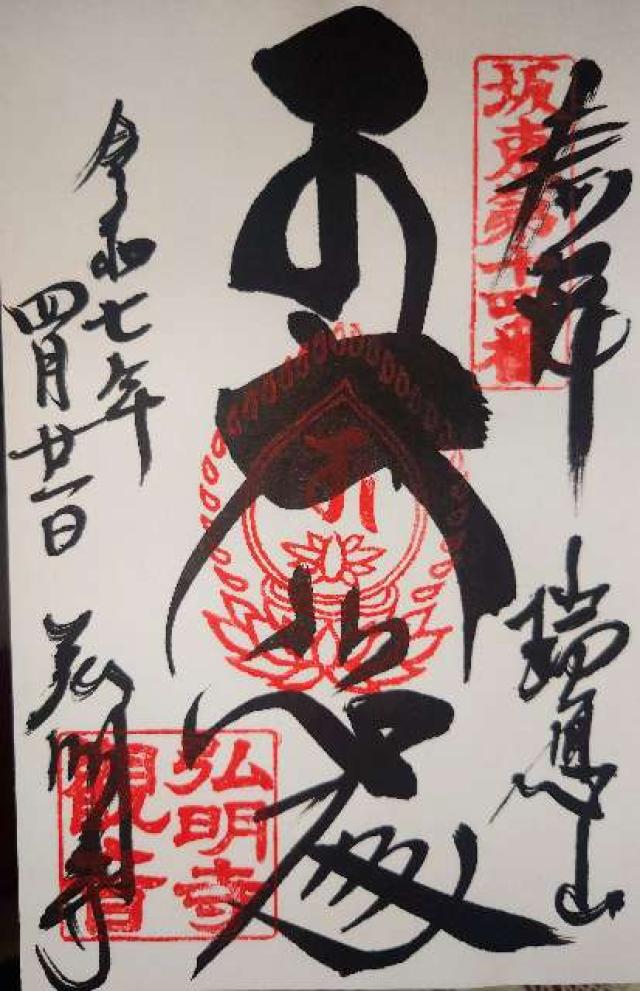 奉拝
坂東第十四
瑞應山
令和七年
四月廿一日
弘明寺
弘明寺
観音